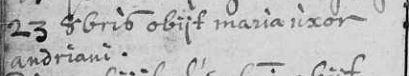 23 8bris obijt maria uxor
andriani.